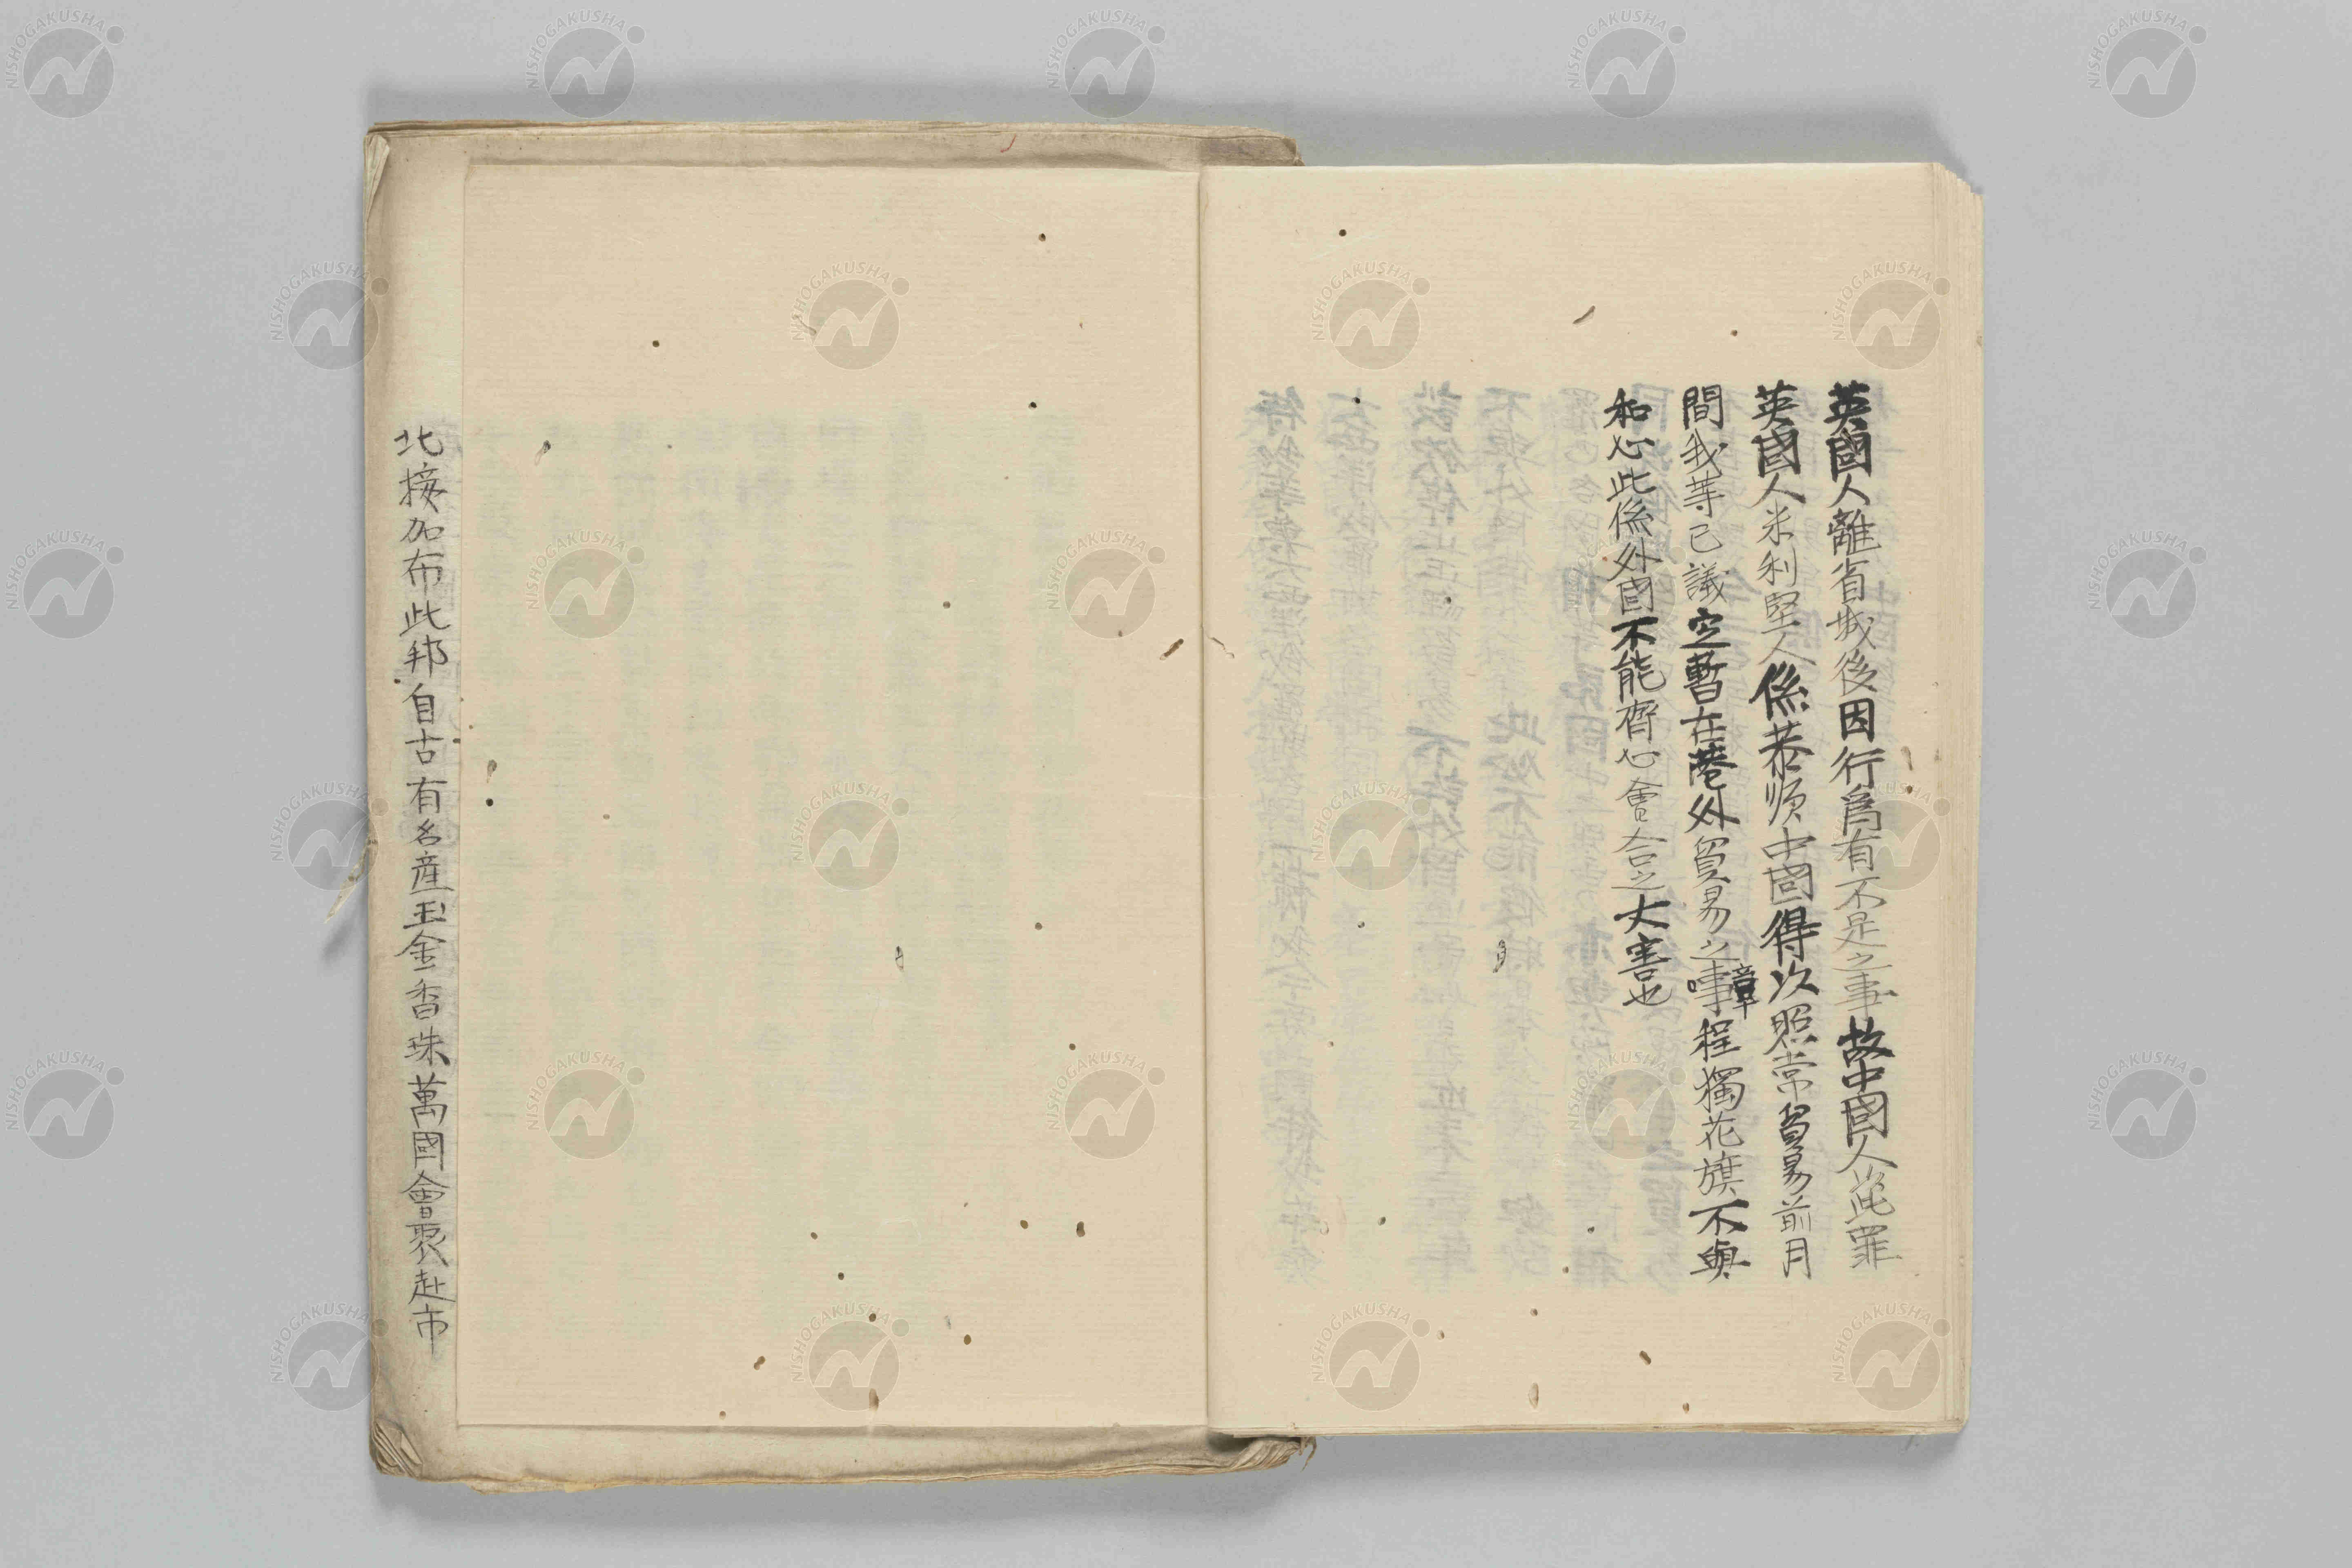 英國人離省城後因行爲有不足之事故中國人嵗罪
英國人米利堅人係恭順中國得次照常貿易前月
間我等已議空暫在巷外貿易之事章程獨花旗不與
和心此係外國不能齊心會合之大害也
北接加布此邦自古有名産玉金香珠萬國會聚赴市
NISHOGAKUSHA